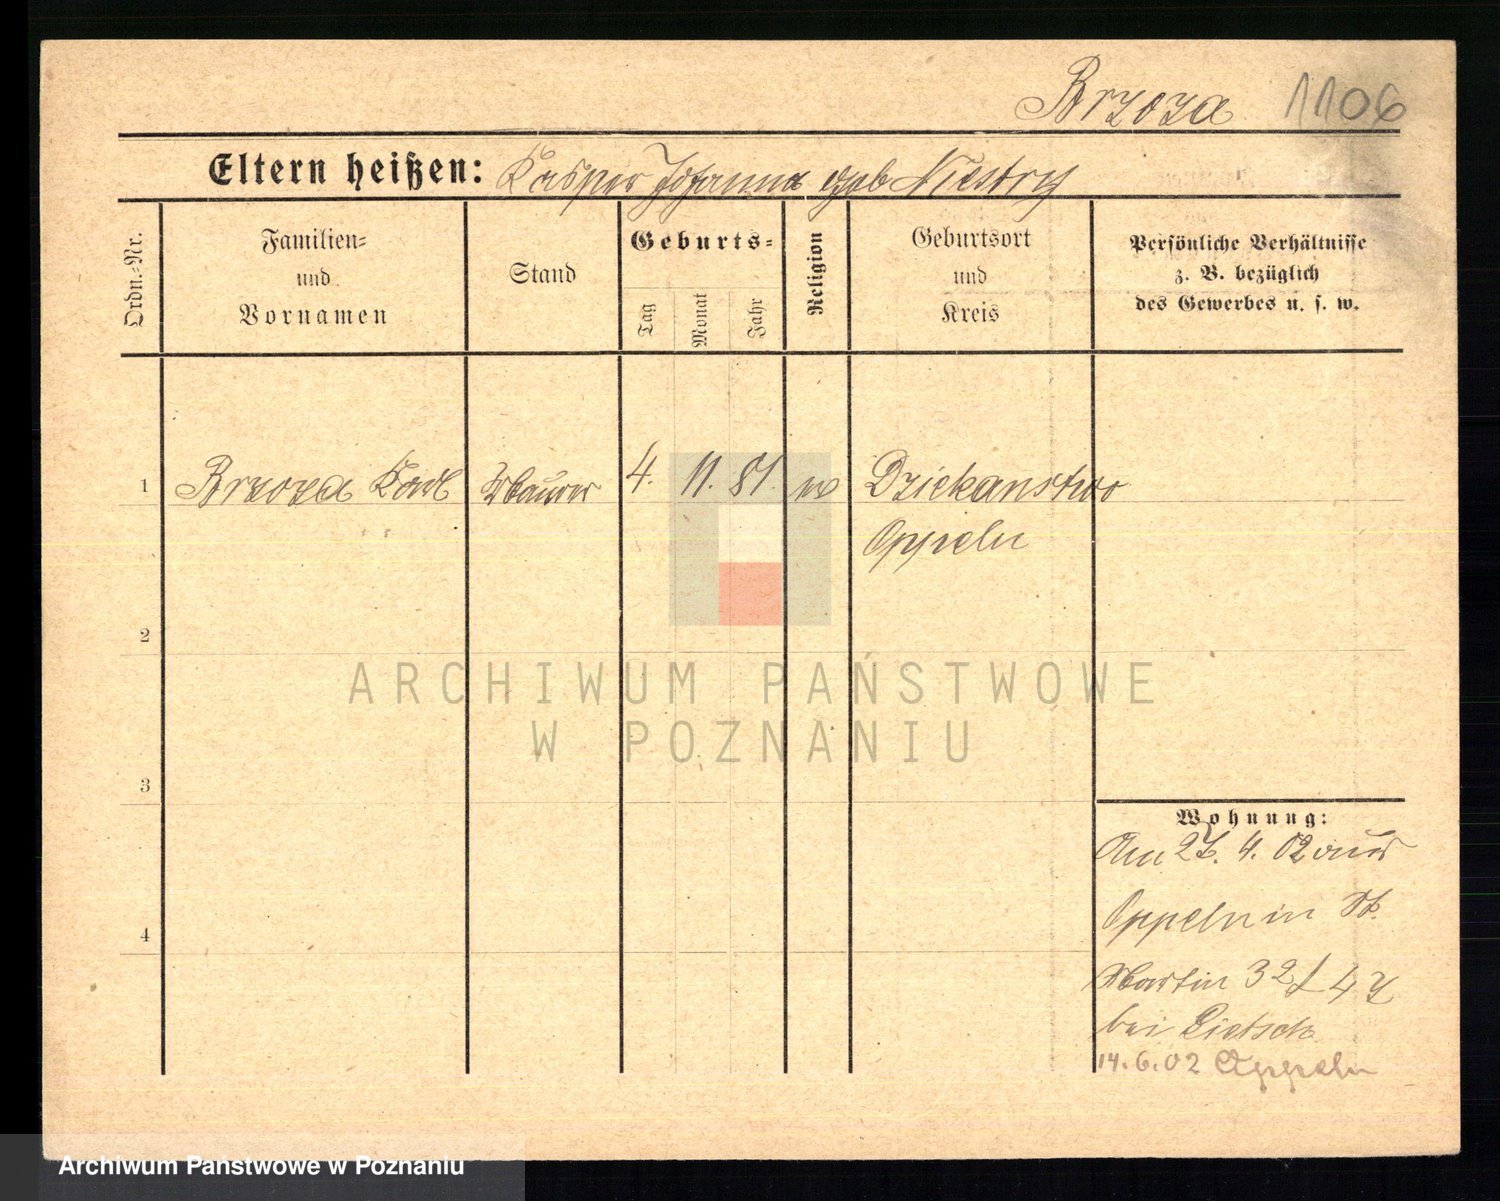 Brzoza 1106
Eltern heißen: Kasper Johanna geb Niestry
Ordn.-Nr.
Familien-
und
Vornamen
Stand
Geburts-
Tag
Monat
Jahr
Religion
Geburtsort
und
Kreis
Persönliche Verhältnisse
z. B. bezüglich
des Gewerbes u. s. w.
1 Brzoza Karl Maurer 4. 11. 81. Dziekanstwo
Oppeln
2
3
4
Wohnung:
Am 26. 4. 02 aus
Oppeln in St.
Martin 32
bei Lietsch
14.6.02 Oppeln
ARCHIWUM PAŃSTWOWE
W POZNANIU
Archiwum Państwowe w Poznaniu